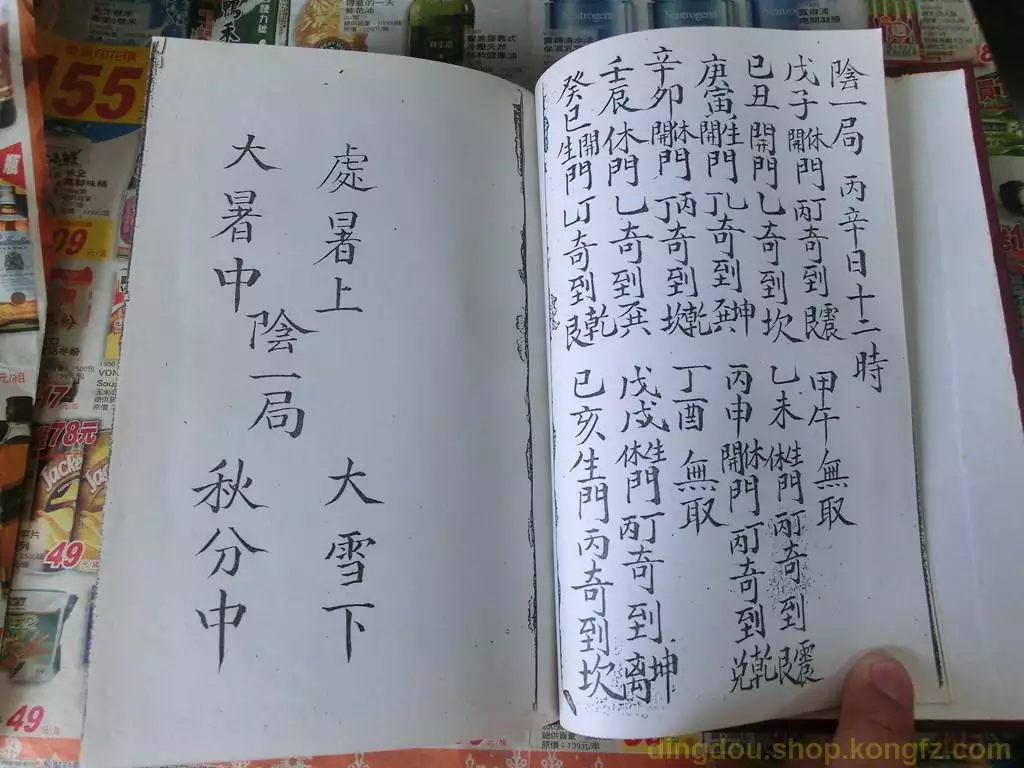 陰一局 丙辛日十二時
戊子開休門丙丁奇到艮震
己丑開門乙奇到坎
庚寅開生門丁乙奇到巽坤
辛卯開休門丁丙奇到坎乾
壬辰休門乙奇到巽
癸巳生開門乙丁奇到艮乾
甲午無取
乙未休生門丙丁奇到艮震
丙申開休門丙丁奇到兌乾
丁酉無取
戊戌休生門丙丁奇到离坤
己亥生門丙奇到坎
處暑上
大雪下
陰一局
大暑中
秋分中
155
Neutrogena
Neutrogena
Neutrogena
78元
49
49
dingdou.shop.kongfz.com